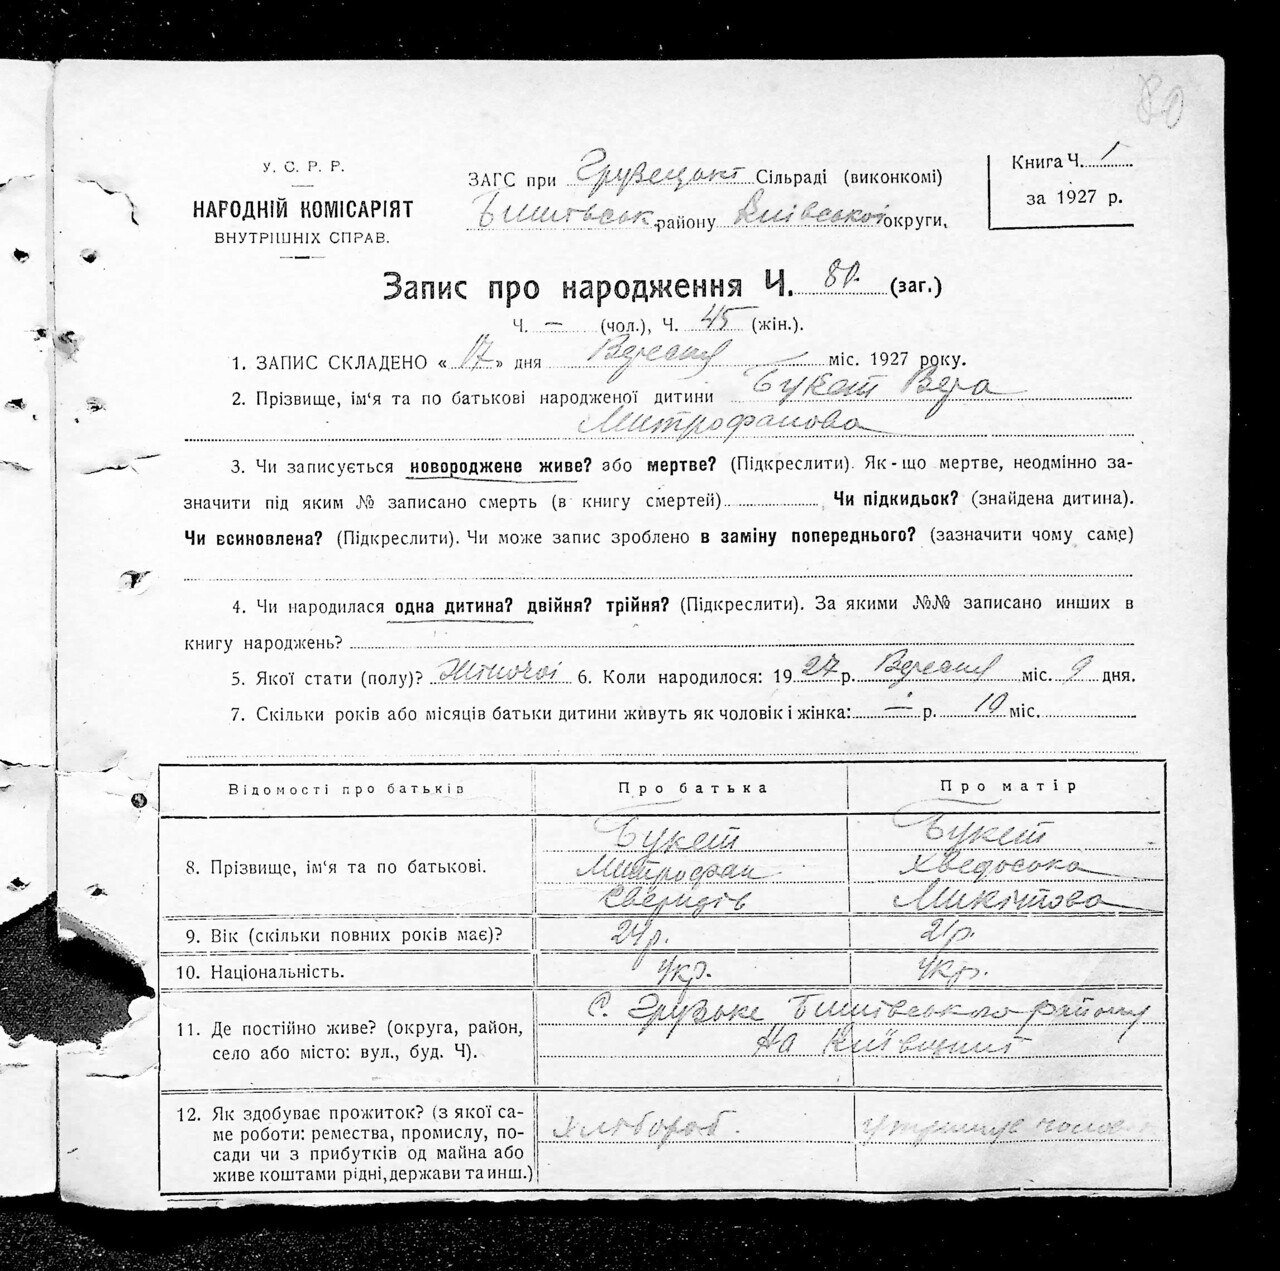 80
У. С. Р. Р.
НАРОДНІЙ КОМІСАРІЯТ
ВНУТРІШНІХ СПРАВ.
ЗАГС при Грузецькі Сільраді (виконкомі)
Бишівськ. району Київської округи,
Книга Ч. 1
за 1927 р.
Запис про народження Ч. 80. (заг.)
Ч. — (чол.), Ч. 45 (жін.).
1. ЗАПИС СКЛАДЕНО « 17 » дня Вересня міс. 1927 року.
2. Прізвище, ім'я та по батькові народженої дитини Букет Вера
Митрофанова
3. Чи записується новороджене живе? або мертве? (Підкреслити). Як-що мертве, неодмінно за-
значити під яким № записано смерть (в книгу смертей) Чи підкидьок? (знайдена дитина).
Чи всиновлена? (Підкреслити). Чи може запис зроблено в заміну попереднього? (зазначити чому саме)
4. Чи народилася одна дитина? двійня? трійня? (Підкреслити). За якими №№ записано инших в
книгу народжень?
5. Якої стати (полу)? Жіночої 6. Коли народилося: 1927 р. Вересня міс. 9 дня.
7. Скільки років або місяців батьки дитини живуть як чоловік і жінка: — р. 10 міс.
Відомості про батьків Про батька Про матір
8. Прізвище, ім'я та по батькові.
Букет Букет
Митрофан Хведоська
Свиридів Микітова
9. Вік (скільки повних років має)? 24 р. 21 р.
10. Національність. Укр. Укр.
11. Де постійно живе? (округа, район,
село або місто: вул., буд. Ч).
С. Грузьке Бишівського району
на Київщині
12. Як здобуває прожиток? (з якої са-
ме роботи: ремества, промислу, по-
сади чи з прибутків од майна або
живе коштами рідні, держави та инш.)
Хлібороб. утримує